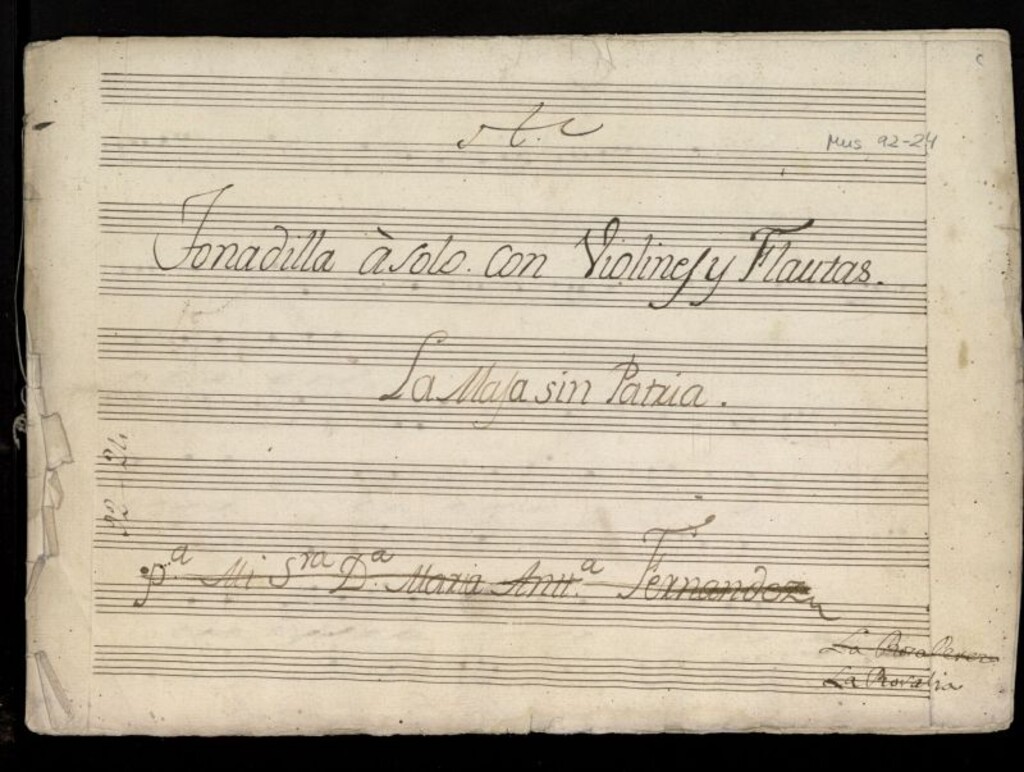 Mus 92-24
Tonadilla à solo. con Violines y Flautas.
La Maja sin Patria.
92-24
p.ª Mi Sra D.ª Maria Antt.ª Fernandez
La
La Rosalia